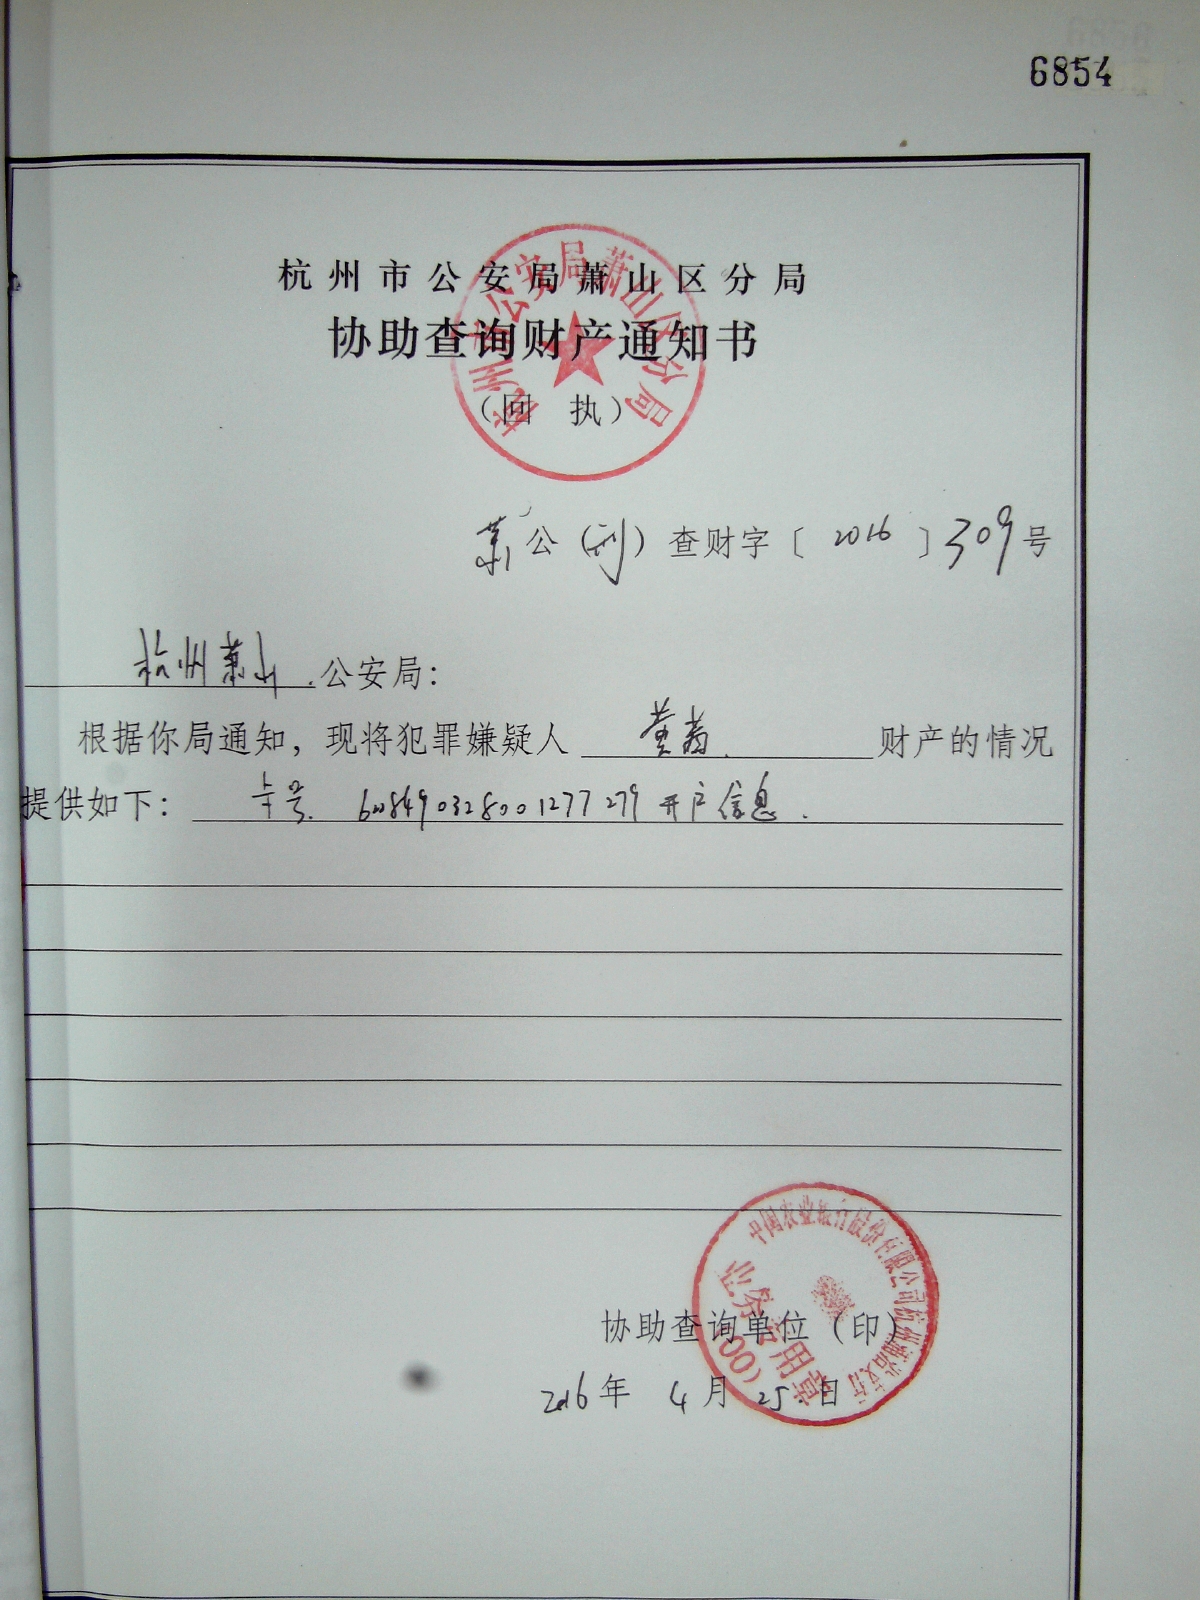 6854
杭州市公安局萧山区分局
协助查询财产通知书
（回 执）
萧公（刑）查财字〔2016〕309号
杭州萧山公安局：
根据你局通知，现将犯罪嫌疑人 黄 财产的情况
提供如下： 卡号 开户信息.
协助查询单位（印）
2016年 4月 25日
杭州市公安局萧山区分局
中国农业银行股份有限公司杭州
业务专用章